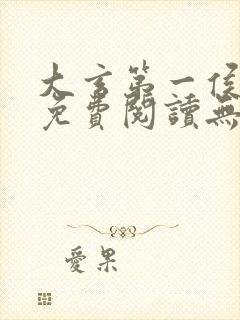 大言第一侯
免費閱讀無
愛果